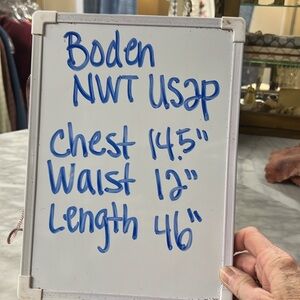 Boden
NWT US2P
Chest 14.5"
Waist 12"
Length 46"